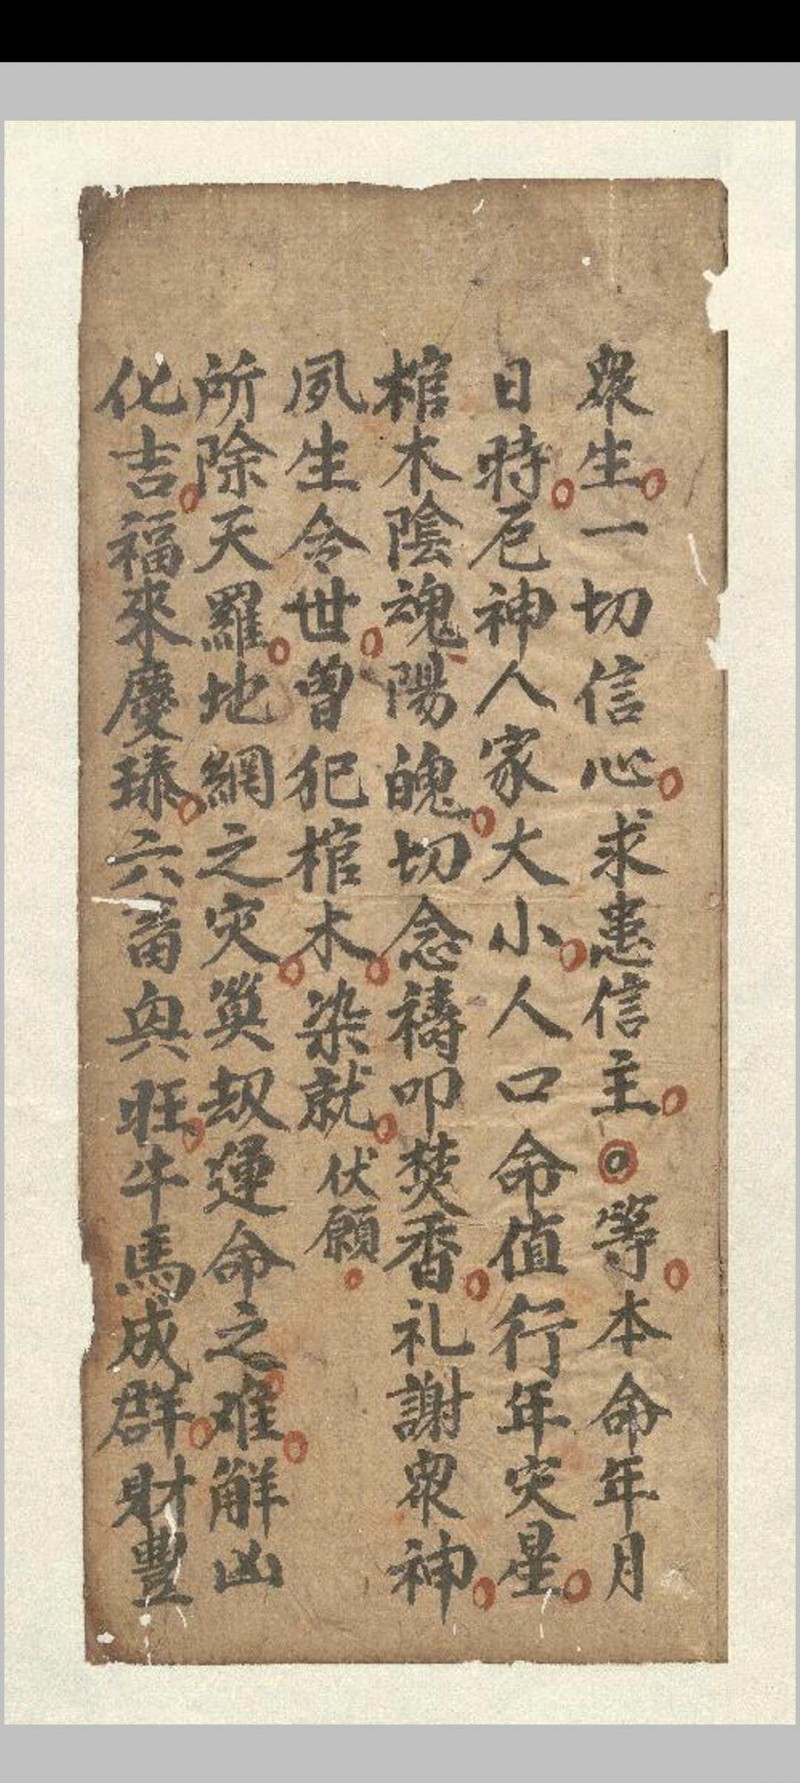 眾生一切信心求恚信主○等本命年月
日時厄神人家大小人口命值行年灾星
棺木陰魂陽魄切念禱叩焚香礼謝眾神
夙生今世曾犯棺木染就伏願
所除天羅地網之灾筭刼運命之难解凶
化吉福來慶臻六畜興旺牛馬成群財豐